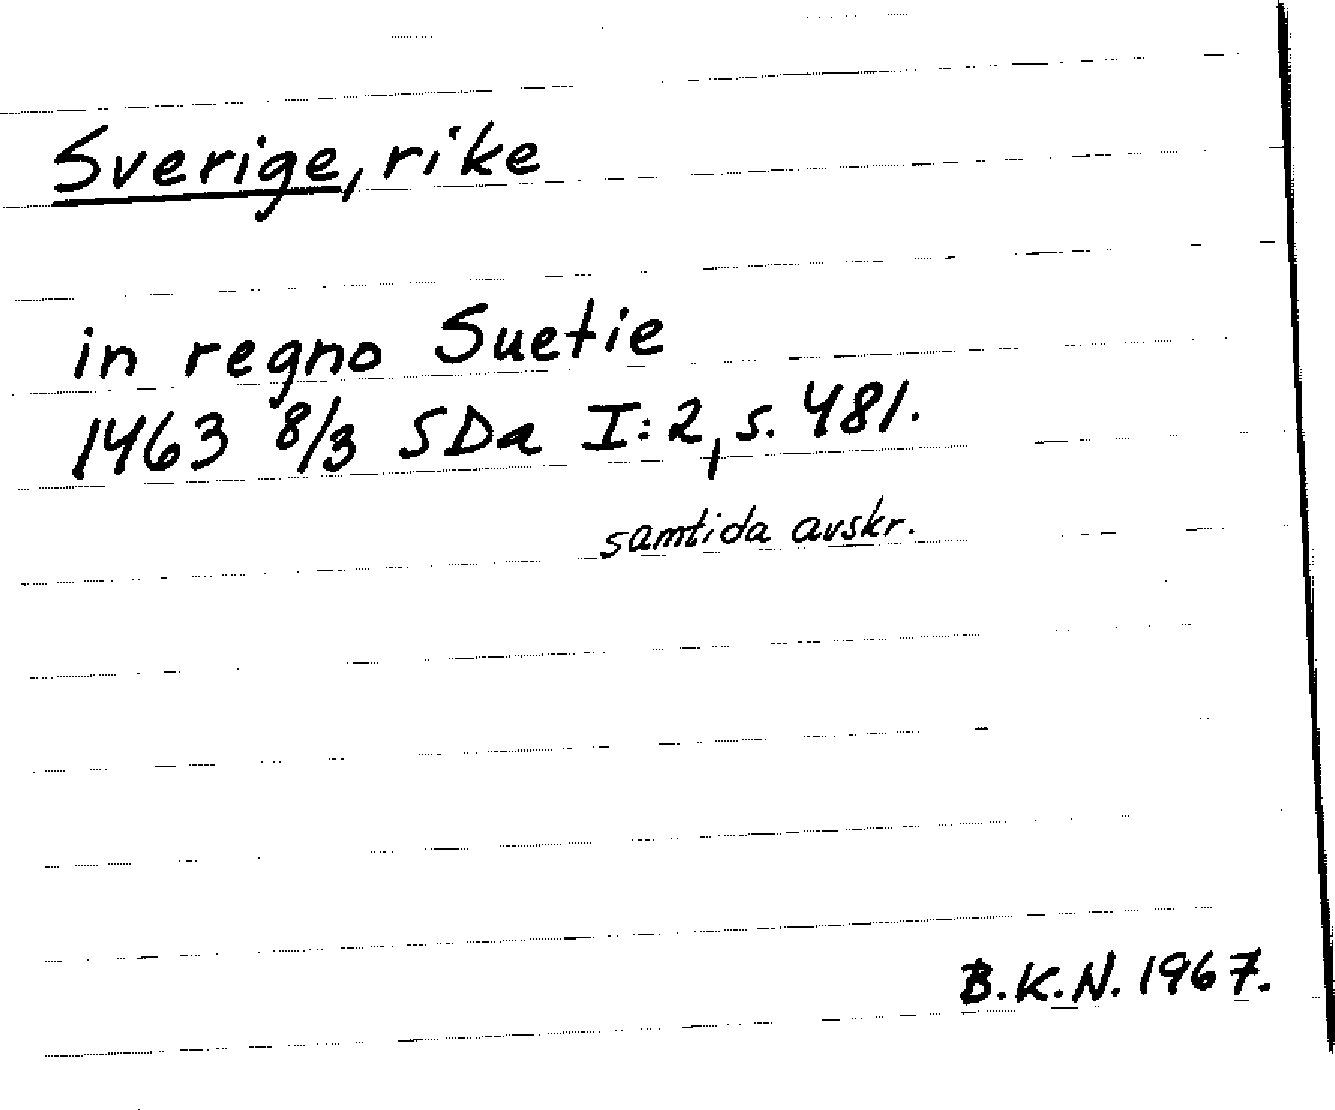 Sverige, rike
in regno Suetie
1463 8/3 SDa I:2, s. 481.
samtida avskr.
B.K.N. 1967.